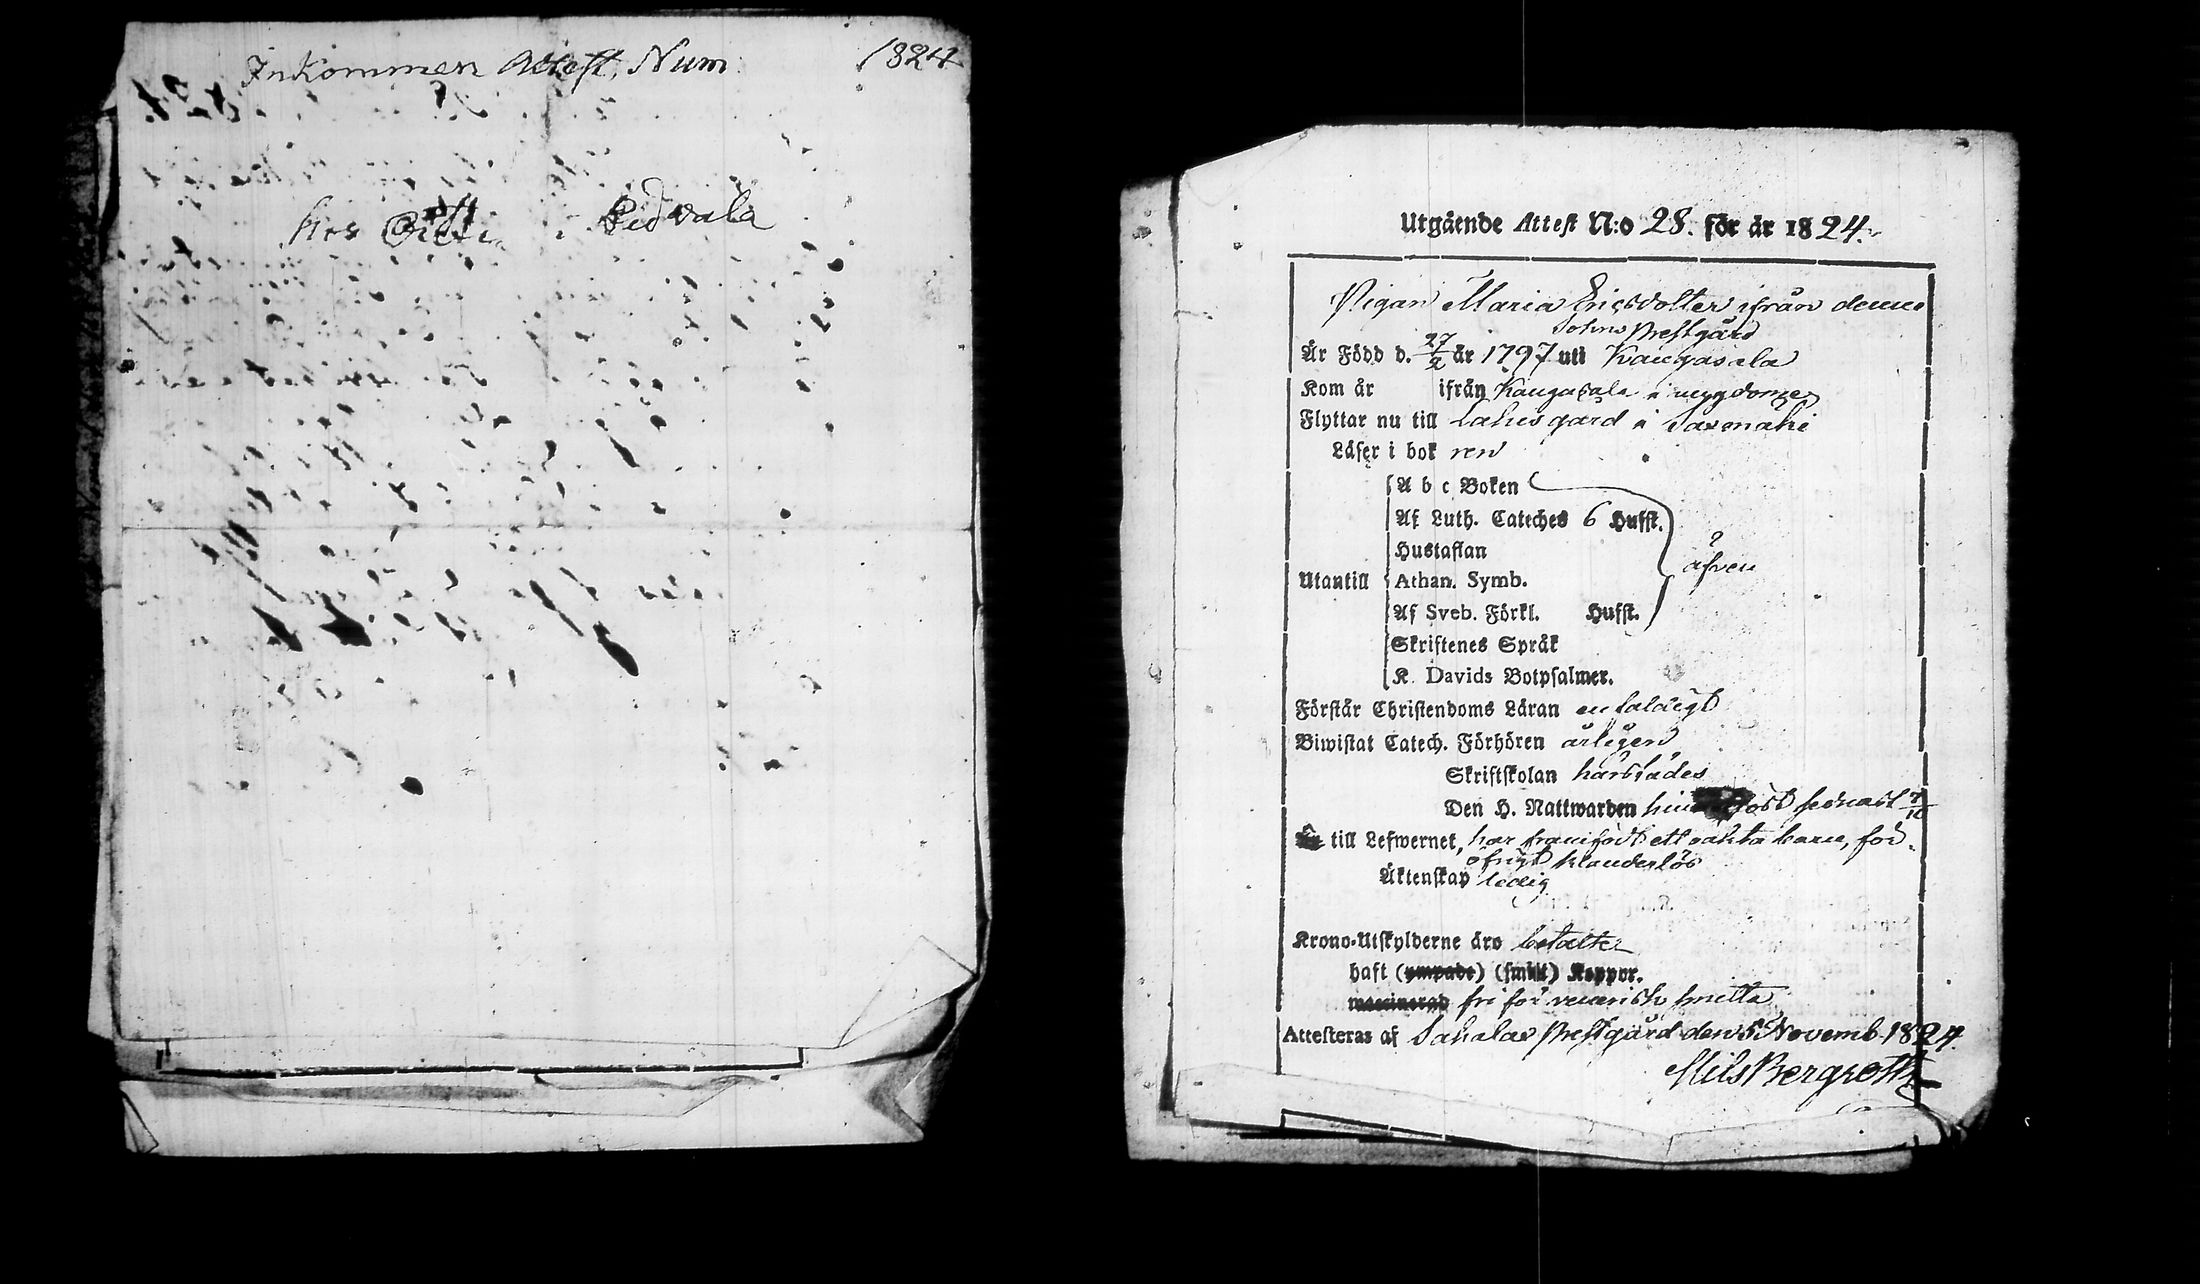 Inkommen Attest, Num 1824
hos i Pedvala
Utgående Attest N:o 28. för år 1824.
Pigan Maria Ericsdotter ifrån denne
Sokns Prestgård
Är Född d. 27/2 år 1797 uti Kangasala
Kom år ifrån Kangasala i ungdomen
Flyttar nu till Lahis gård i Saxmäki
Läser i bok ren
A b c Boken
Af Luth. Cateches 6 Hufst.
Hustaflan
Utantill Athan. Symb.
äfven
Af Sveb. Förkl. Hufst.
Skriftenes Språk
K. Davids Botpsalmer.
Förstår Christendoms Läran enfaldigt
Biwistat Catech. Förhören årligen
Skriftskolan härstädes
Den H. Nattwarden sednast 7/10
till Lefwernet, har framfödt ett oäkta barn, för
öfrigt klanderlös
Äktenskap ledig
Krono-Utskylderne äro betalte
haft (ympade) (smitt) Koppor.
vaccinerad fri för venerisk smitta
Attesteras af Sahalax Prestgård den 5 Novemb. 1824.
Nils Bergroth